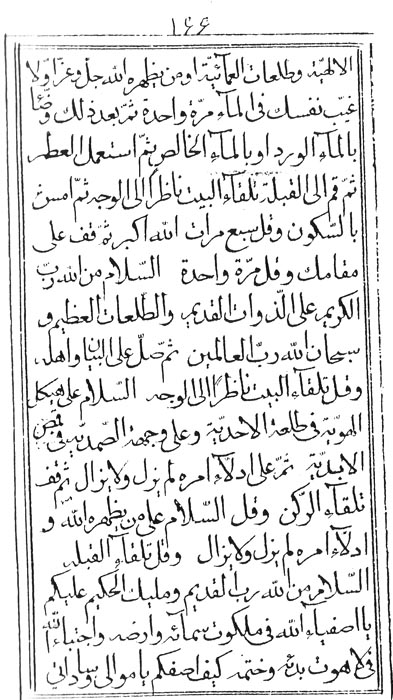 ١٦۶
الالهیة وطلعات العمائیة او من یظهره الله جل وعز اولا
غیّب نفسک فی المآء مرّة واحدة ثمّ بعد ذلک وضّئا
بالمآء الورد او بالمآء الخالص ثمّ استعمل العطر
ثمّ قم الی القبلة تلقآء البیت ناظراً الی الوجه ثمّ امش
بالسّکون وقل سبع مرات الله اکبر ثمّ قف علی
مقامک وقل مرّة واحدة السّلام من الله ربّ
الکریم علی الذوات القدیم والطلعات العظیم و
سبحان الله ربّ العالمین ثم صلّ علی البیان واهله
وقل تلقآء البیت ناظراً الی الوجه السّلام علی هیکل
الهویّة فی طلعة الاحدیّة وعلی وجهة الصمدیّة فی قمص
الابدیّة ثمّ علی ادلآء امره لم یزل ولا یزال ثمّ قف
تلقآء الرّکن وقل السّلام علی من یظهره الله و
ادلآء امره لم یزل ولا یزال وقل تلقآء القبلة
السّلام من الله رب القدیم وملیک الحکیم علیکم
یا اصفیآء الله فی ملکوت سمائه وارضه واجتباء الله
فی لاهوت بدئه وختمه کیف اصفکم یا موالی وساداتی